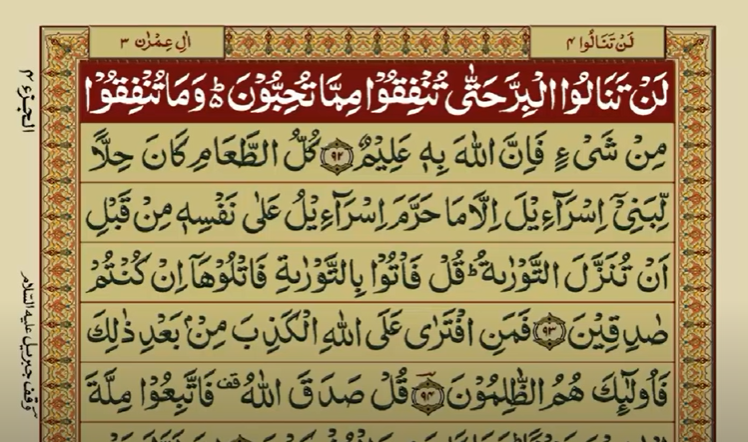 لَنْ تَنَالُوا ۴
اٰلِ عِمْرٰن ۳
لَنْ تَنَالُوا الْبِرَّ حَتّٰى تُنْفِقُوْا مِمَّا تُحِبُّوْنَ ؕ وَمَا تُنْفِقُوْا
مِنْ شَیْءٍ فَاِنَّ اللّٰهَ بِهٖ عَلِیْمٌ ۝۹۲ كُلُّ الطَّعَامِ كَانَ حِلًّا
لِّبَنِیْۤ اِسْرَآءِیْلَ اِلَّا مَا حَرَّمَ اِسْرَآءِیْلُ عَلٰی نَفْسِهٖ مِنْ قَبْلِ
اَنْ تُنَزَّلَ التَّوْرٰىةُ ؕ قُلْ فَاْتُوْا بِالتَّوْرٰىةِ فَاتْلُوْهَاۤ اِنْ كُنْتُمْ
صٰدِقِیْنَ ۝۹۳ فَمَنِ افْتَرٰی عَلَی اللّٰهِ الْكَذِبَ مِنْۢ بَعْدِ ذٰلِكَ
فَاُولٰٓىِٕكَ هُمُ الظّٰلِمُوْنَ ۝۹۴ قُلْ صَدَقَ اللّٰهُ قف فَاتَّبِعُوْا مِلَّةَ
الجزء ۴
وقف جبریل علیه السلام